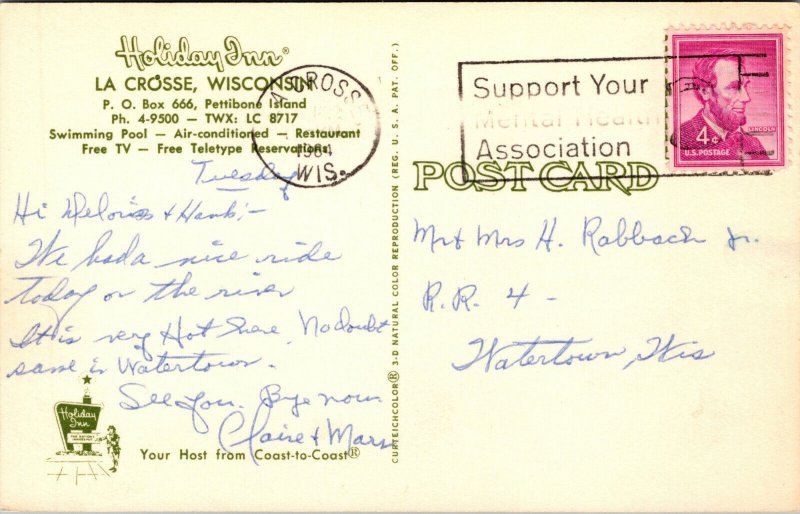 Holiday Inn®
LA CROSSE, WISCONSIN
P. O. Box 666, Pettibone Island
Ph. 4-9500 — TWX: LC 8717
Swimming Pool — Air-conditioned — Restaurant
Free TV — Free Teletype Reservations
LA CROSSE
1964
WIS.
Support Your
Mental Health
Association
4¢
LINCOLN
U.S. POSTAGE
POST CARD
Tuesday
Hi Deloriss & Hank:-
We had a nice ride
today on the river
It is very Hot here. No doubt
same in Watertown.
See you. Bye now
Claire & Mars
Mr & Mrs H. Rabbach Jr.
R.R. 4 -
Watertown, Wis
CURTEICHCOLOR® 3-D NATURAL COLOR REPRODUCTION (REG. U. S. A. PAT. OFF.)
Holiday
Inn
Your Host from Coast-to-Coast®